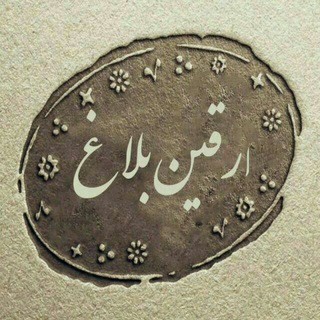 ارقین بلاغ